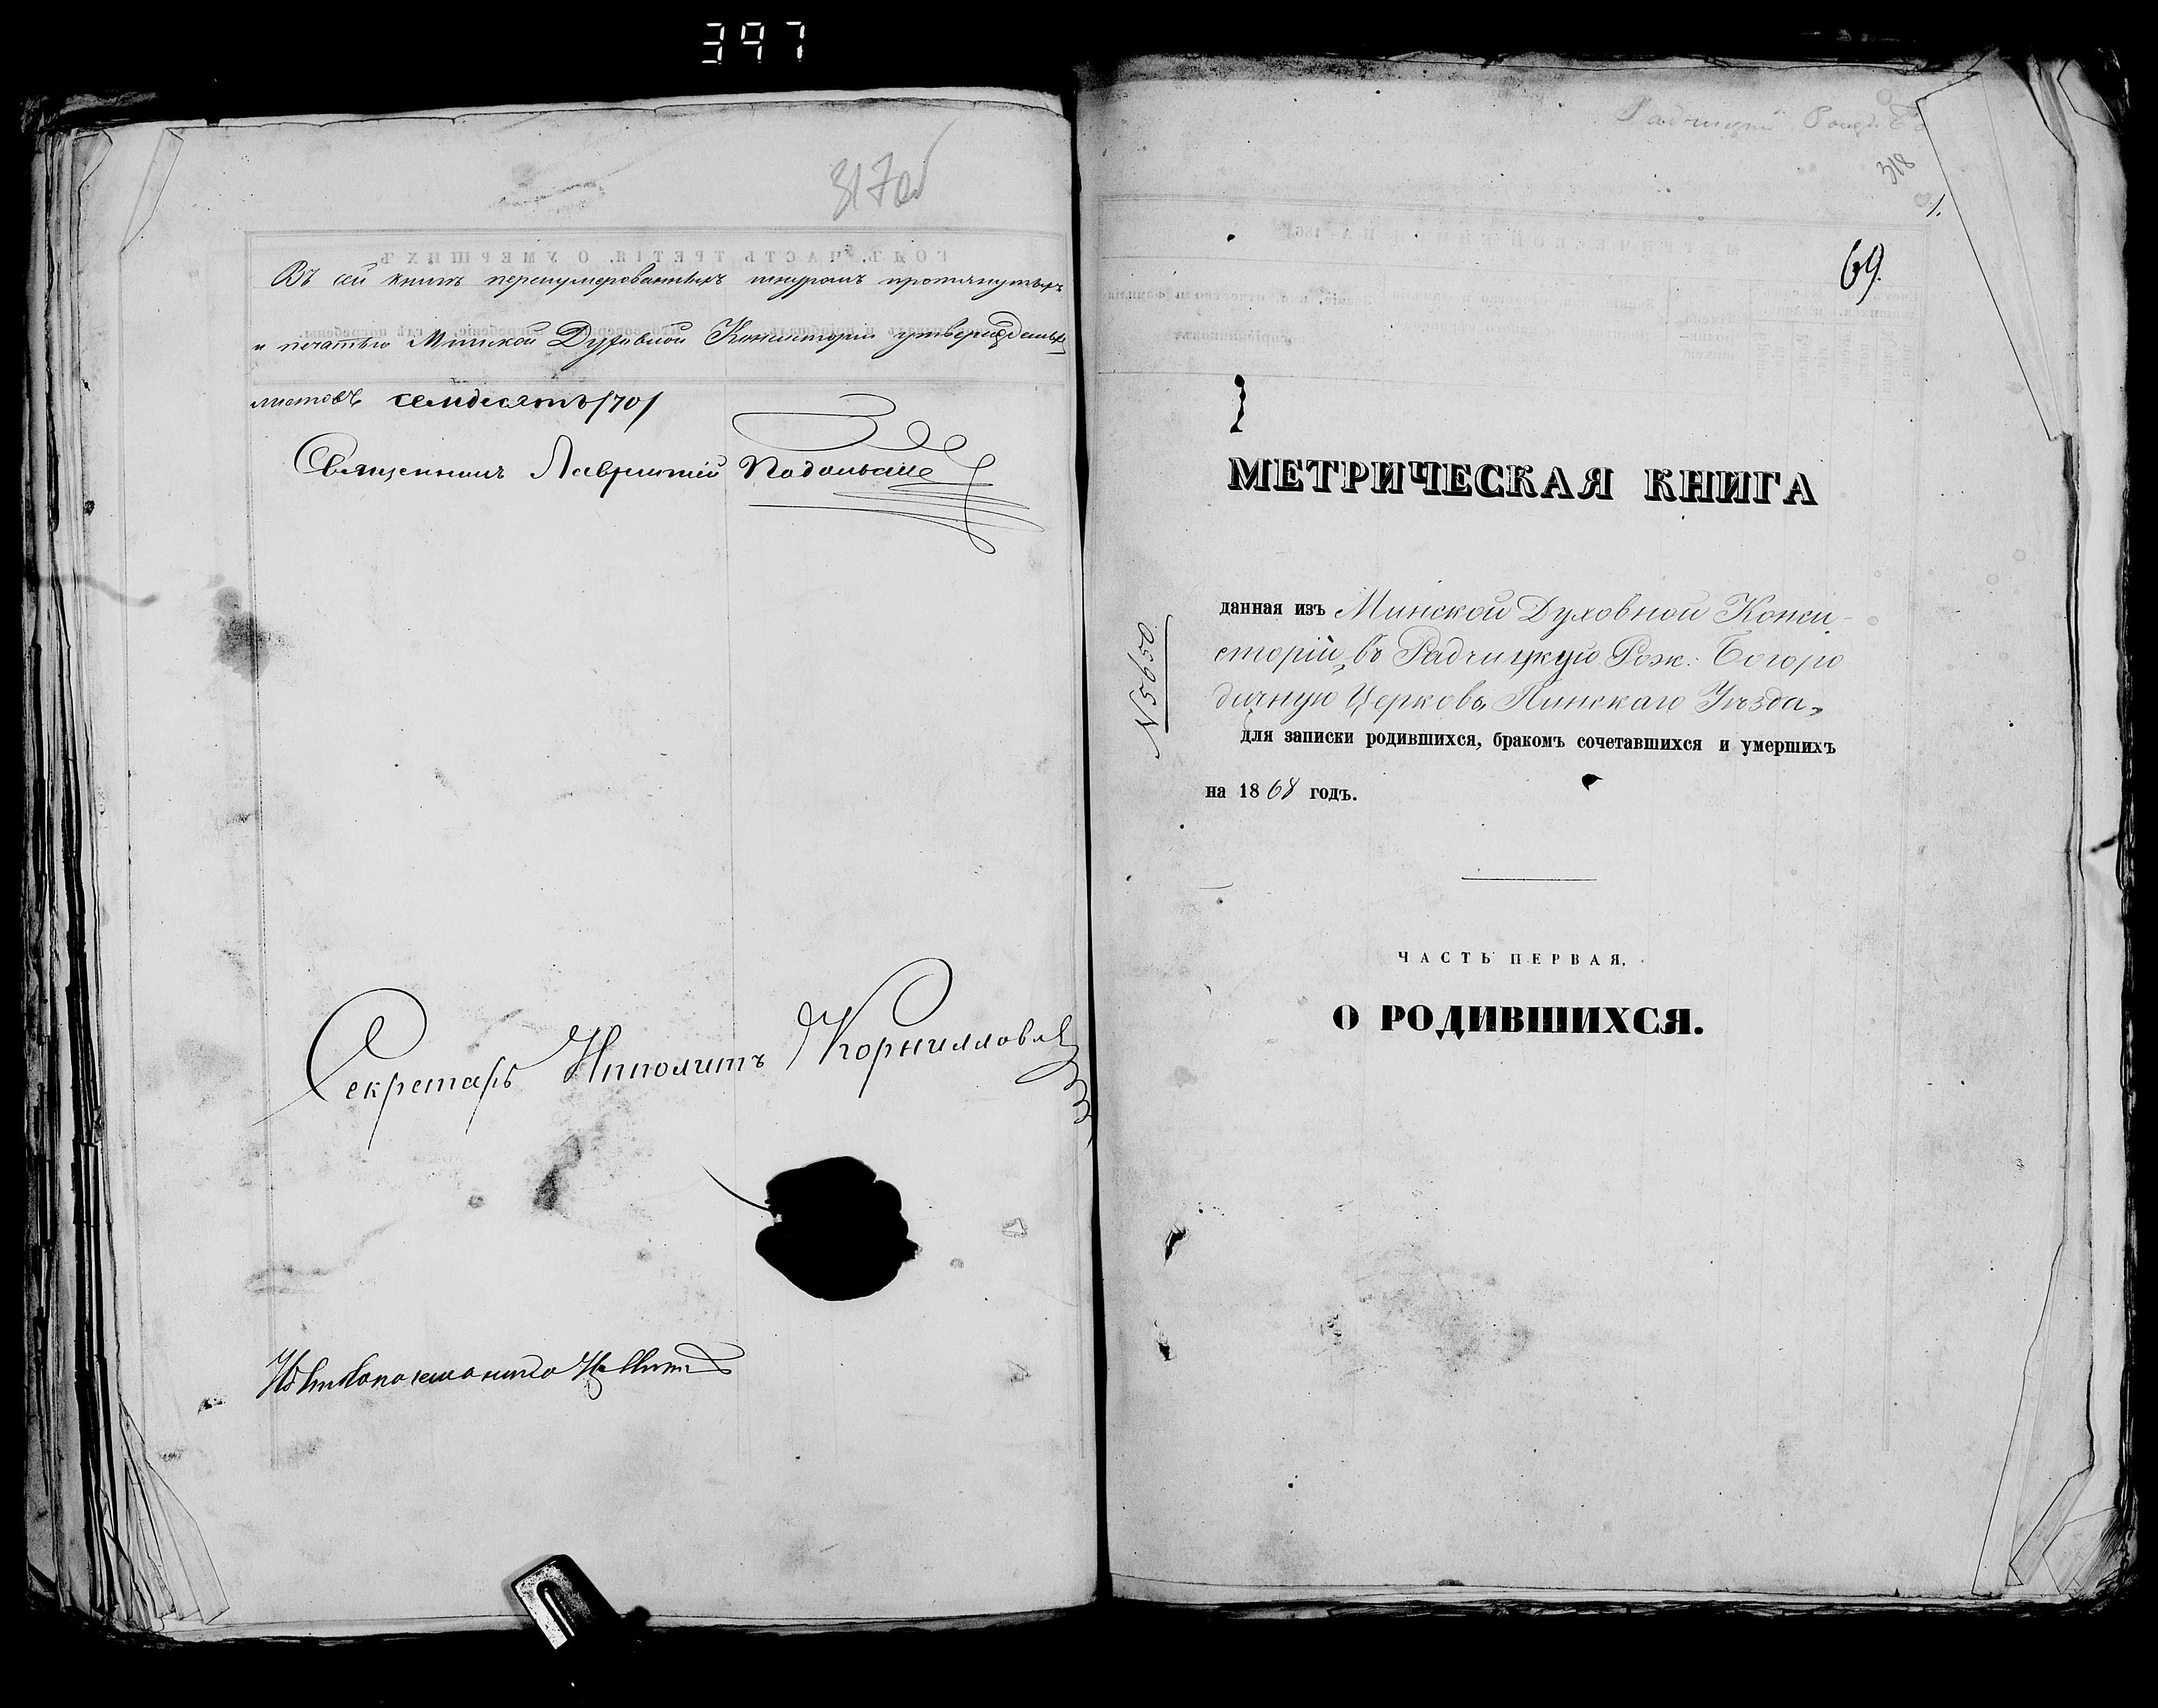 397
317об
Въ сей книгѣ перенумерованныхъ шнуромъ протянутыхъ
и печатью Минской Духовной Консисторіи утвержденныхъ
листовъ семдесятъ /70/
Священникъ Лаврентій
Секретарь Иполитъ Корниллов
318
1.
69.
МЕТРИЧЕСКАЯ КНИГА
данная изъ Минской Духовной Конси-
сторіи, въ Радчицкую Рож. Богоро
дичную Церковь, Пинскаго Уѣзда,
для записки родившихся, бракомъ сочетавшихся и умершихъ
на 1868 годъ.
N 5650
ЧАСТЬ ПЕРВАЯ.
О РОДИВШИХСЯ.